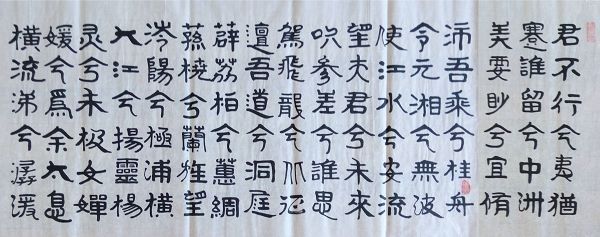 君不行兮夷猶
蹇誰留兮中洲
美要眇兮宜脩
沛吾乘兮桂舟
令元湘兮無波
使江水兮安流
望夫君兮未來
吹參差兮誰思
駕飛龍兮北征
邅吾道兮洞庭
薜荔柏兮蕙綢
蓀橈兮蘭旌望
涔陽兮極浦橫
大江兮揚靈楊
靈兮未極女嬋
媛兮爲余大息
橫流涕兮潺湲